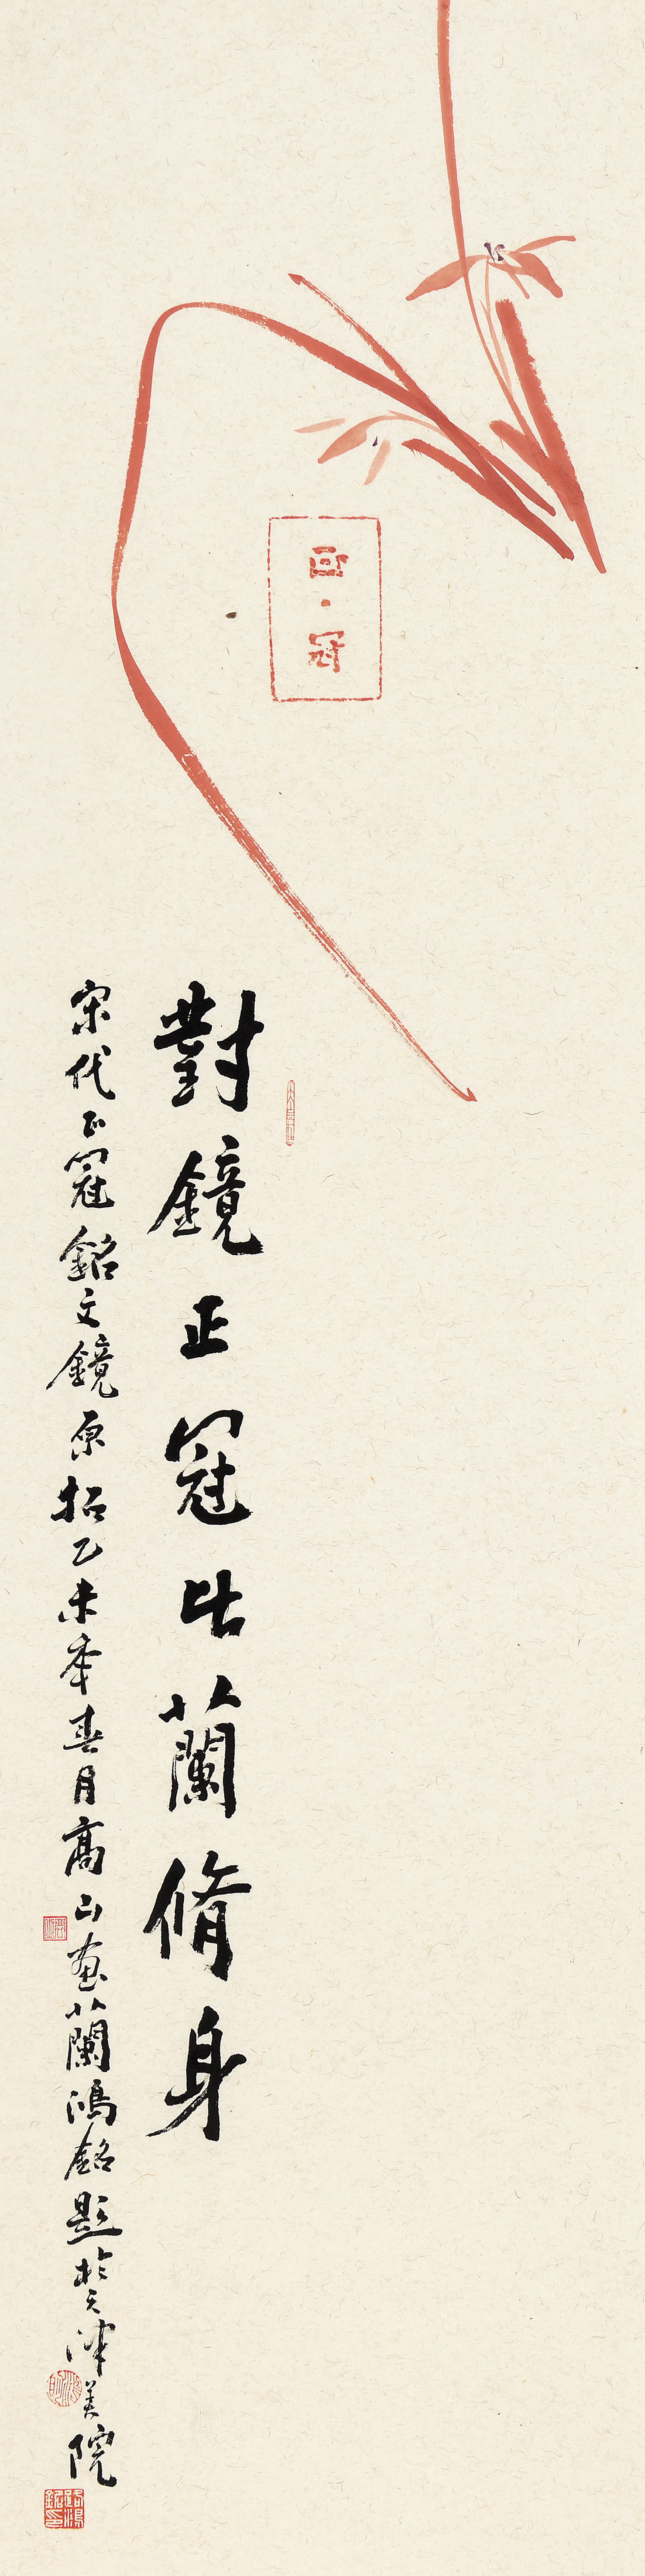 正冠
對鏡正冠比蘭脩身
宋代正冠銘文鏡原拓乙未年春月高山畫蘭鴻銘題於天津美院